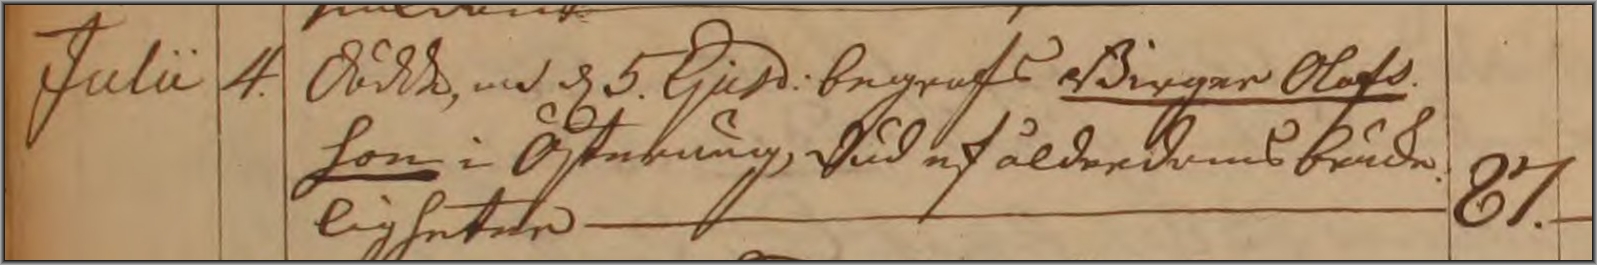 Julii 4. Dödde, och d 5. Ejusd: begrofs Birger Olofs
son i Österäng, Död af ålderdoms bräck
ligheter 87.